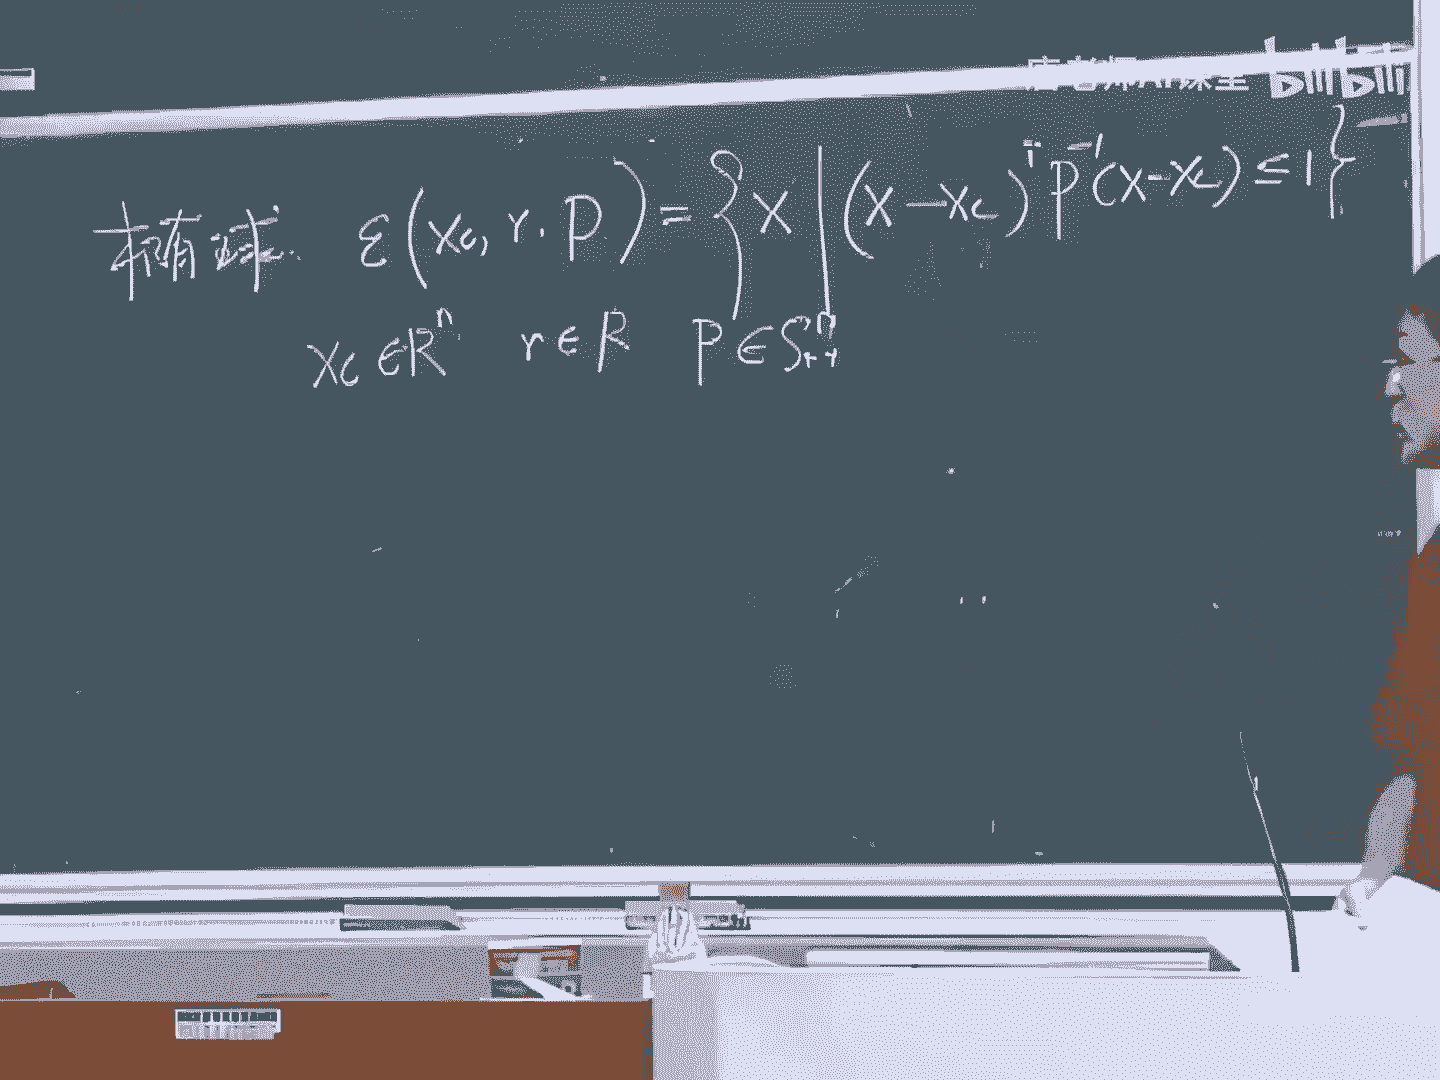 唐老师AI课堂 bilibili
椭球. ε(x_c, r, P) = {x | (x-x_c)^T P^{-1} (x-x_c) ≤ 1}
x_c ∈ R^n r ∈ R P ∈ S^n_{++}